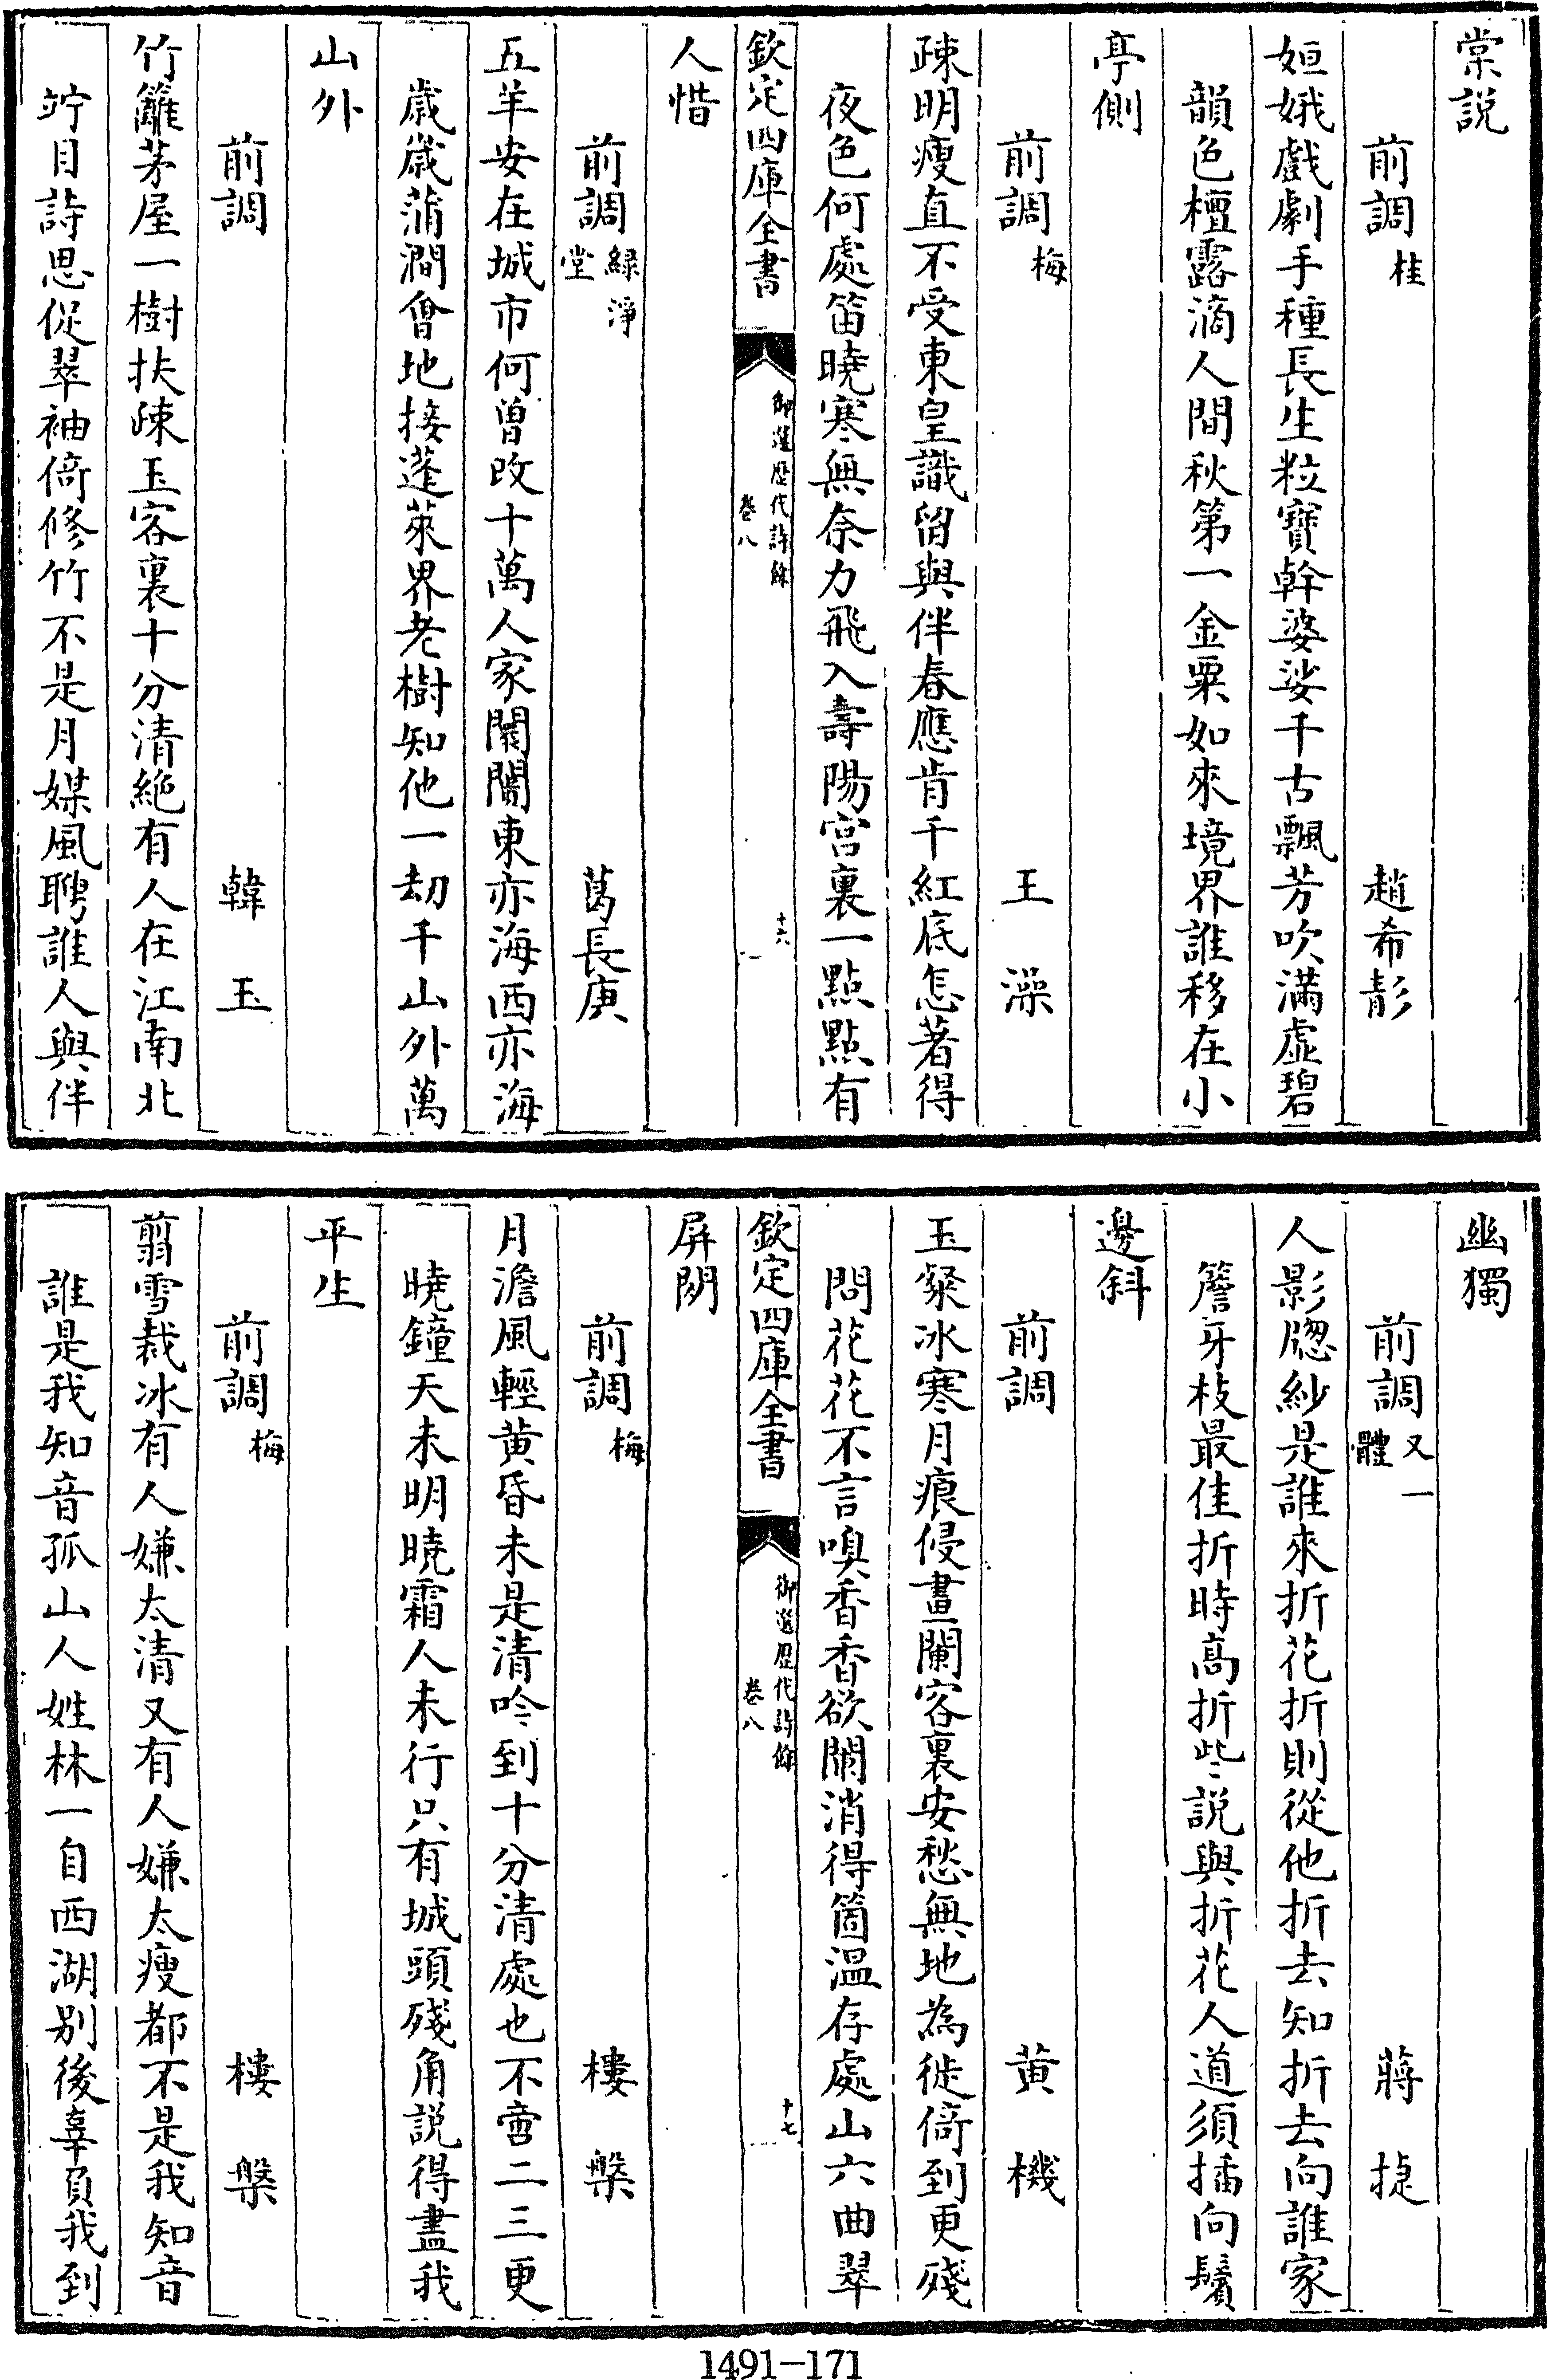 棠説
前調桂　趙希彭
姮娥戲劇手種長生粒寳幹婆娑千古飄芳吹滿虛碧
韻色檀露滴人間秋第一金粟如來境界誰移在小
亭側
前調梅　王澡
疎明瘦直不受東皇識留與伴春應肯千紅底怎著得
夜色何處笛曉寒無奈力飛入壽陽宮裏一點點有
欽定四庫全書　御選歷代詩餘　卷八　十六
人惜
前調綠淨堂　葛長庚
五羊安在城市何曽改十萬人家闤闠東亦海西亦海
歲歲蒲澗會地接蓬萊界老樹知他一劫千山外萬
山外
前調　韓玉
竹籬茅屋一樹扶疎玉客裏十分清絶有人在江南北
竚目詩思促翠袖倚修竹不是月媒風聘誰人與伴
幽獨
前調又一體　蔣捷
人影牕紗是誰來折花折則從他折去知折去向誰家
簷牙枝最佳折時高折些説與折花人道須插向鬢
邊斜
前調　黄機
玉粲冰寒月痕侵畫闌客裏安愁無地為徙倚到更殘
問花花不言嗅香香欲闌消得箇温存處山六曲翠
欽定四庫全書　御選歷代詩餘　卷八　十七
屏閒
前調梅　樓槃
月澹風輕黄昏未是清吟到十分清處也不啻二三更
曉鐘天未明曉霜人未行只有城頭殘角説得盡我
平生
前調梅　樓槃
翦雪裁冰有人嫌太清又有人嫌太瘦都不是我知音
誰是我知音孤山人姓林一自西湖别後辜負我到
1491-171